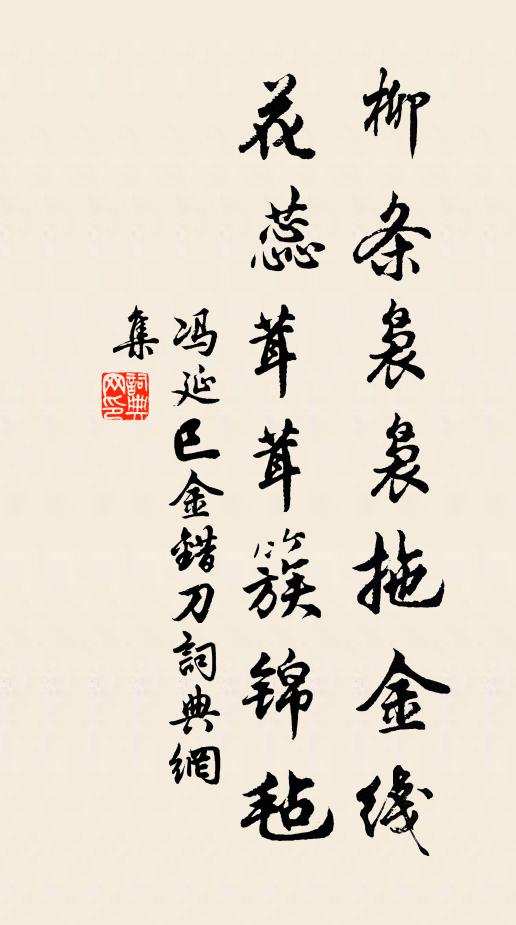 柳条袅袅拖金线
花蕊茸茸簇锦毡
冯延巳金错刀詞典網
集
詞典
网印